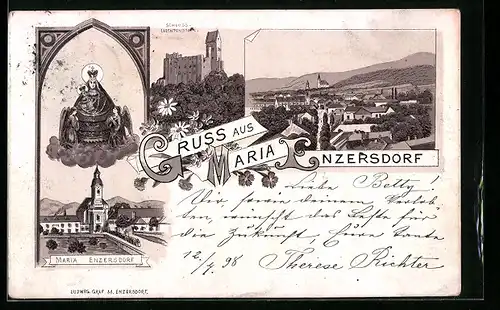 SCHLOSS
LIECHTENSTEIN
GRUSS AUS
MARIA ENZERSDORF
Liebe Betty!
Wir feiern deinem
wünscht das Beste für
die Zukunft, Eure Tante
12/7 98 Therese Richter
MARIA ENZERSDORF
LUDWIG GRAF M. ENZERSDORF.